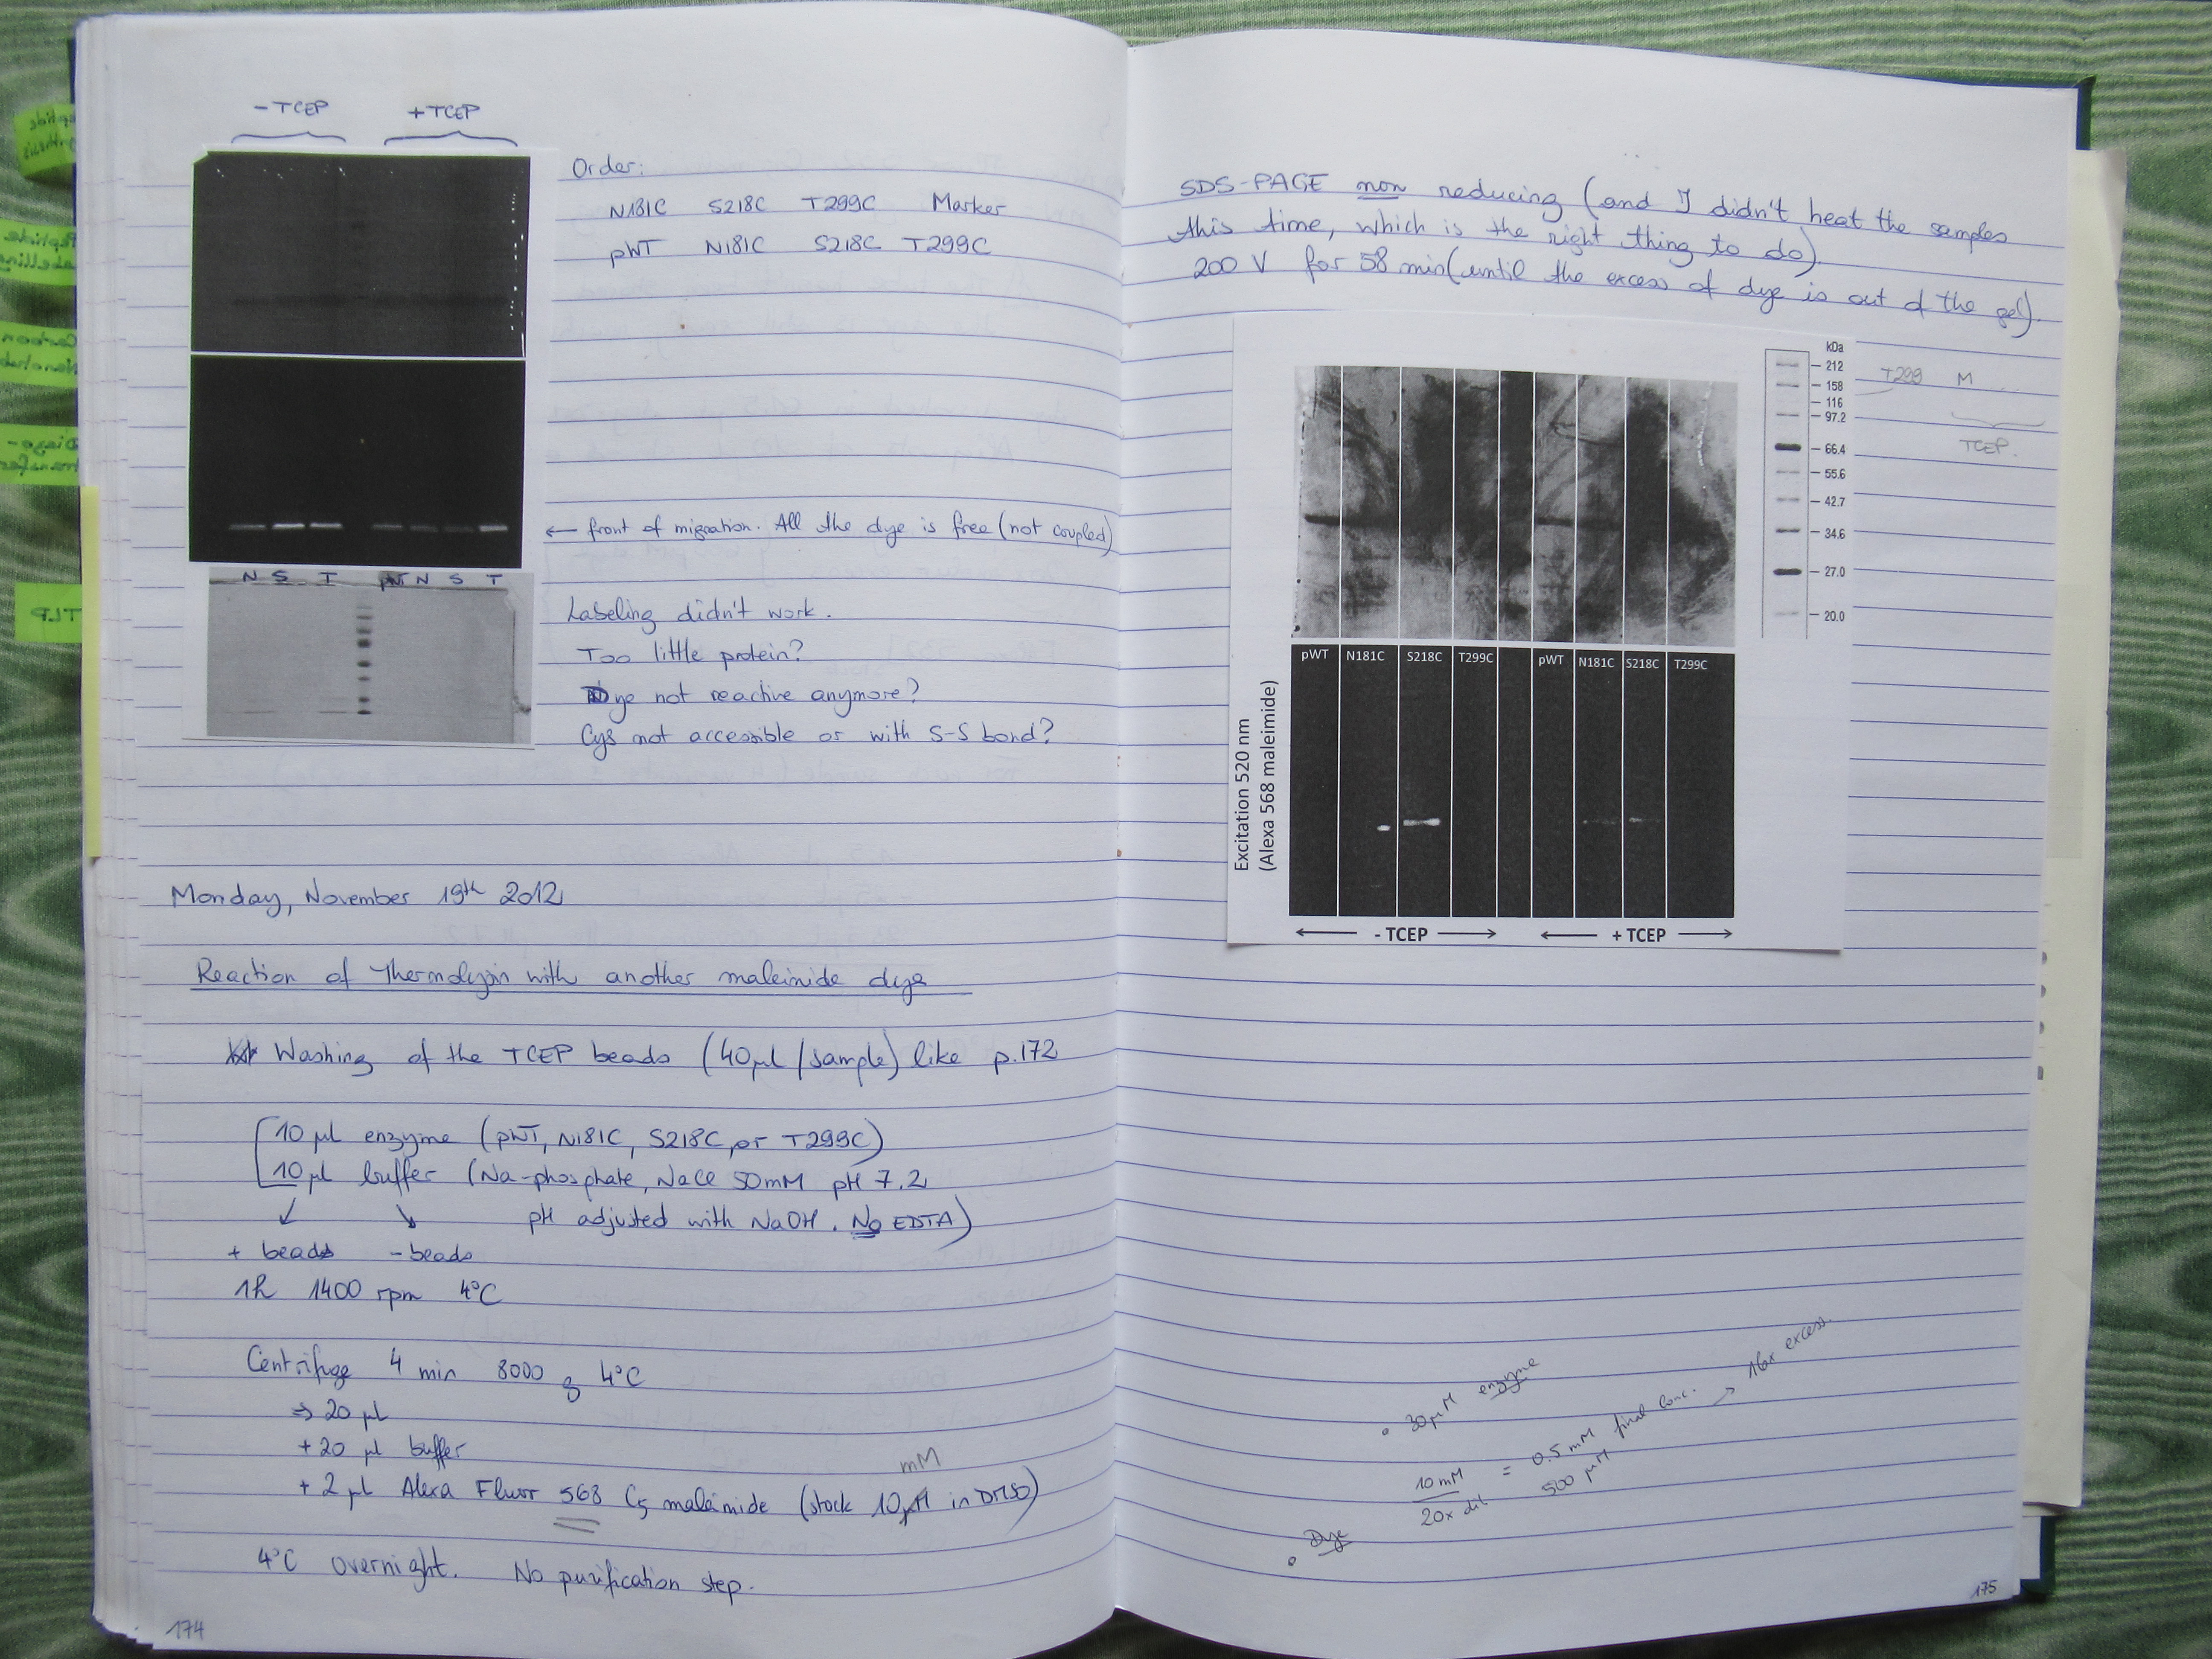 - TCEP
+ TCEP
Order:
N181C S218C T299C Marker
pWT N181C S218C T299C
← front of migration. All the dye is free (not coupled)
N S T pWT N S T
Labeling didn't work.
Too little protein?
Dye not reactive anymore?
Cys not accessible or with S-S bond?
Monday, November 19th 2012
Reaction of Thermolysin with another maleimide dye
Washing of the TCEP beads (40µl/sample) like p.172
10 µl enzyme (pWT, N181C, S218C, or T299C)
10 µl buffer (Na-phosphate, NaCl 50mM pH 7.2
↙ ↘ pH adjusted with NaOH. No EDTA)
+ beads - beads
1h 1400 rpm 4°C
Centrifuge 4 min 8000 g 4°C
⇒ 20 µl
+ 20 µl buffer
mM
+ 2 µl Alexa Fluor 568 C5 maleimide (stock 10µM in DMSO)
4°C overnight. No purification step.
174
SDS-PAGE non reducing (and I didn't heat the samples
this time, which is the right thing to do).
200 V for 58 min (until the excess of dye is out of the gel).
kDa
212
158
116
97.2
66.4
55.6
42.7
34.6
27.0
20.0
T299 M
TCEP.
pWT N181C S218C T299C pWT N181C S218C T299C
Excitation 520 nm
(Alexa 568 maleimide)
← - TCEP → ← + TCEP →
• 30µM enzyme
• Dye 10 mM / 20x dil = 0.5 mM final conc. → 16x excess.
500 µM
175
Peptide
Labelling
Carbon
Diazo-
transfer
TLP